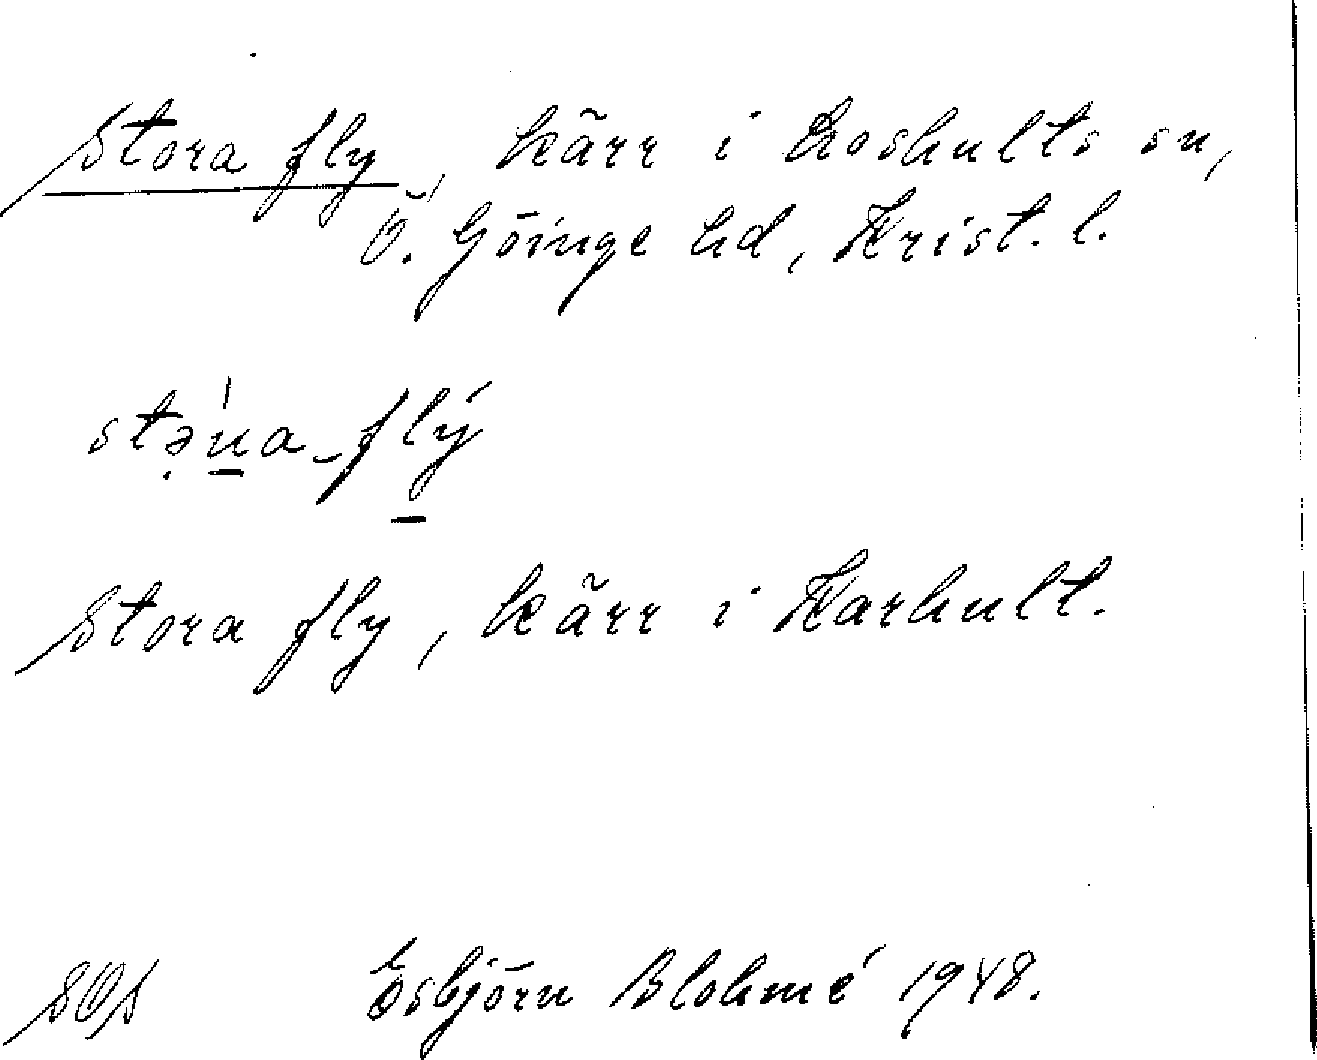 Stora fly, kärr i Loshults sn,
Ö. Göinge hd, Krist. l.
Stora fly, kärr i Karhult.
SOS Esbjörn Blohmé 1948.